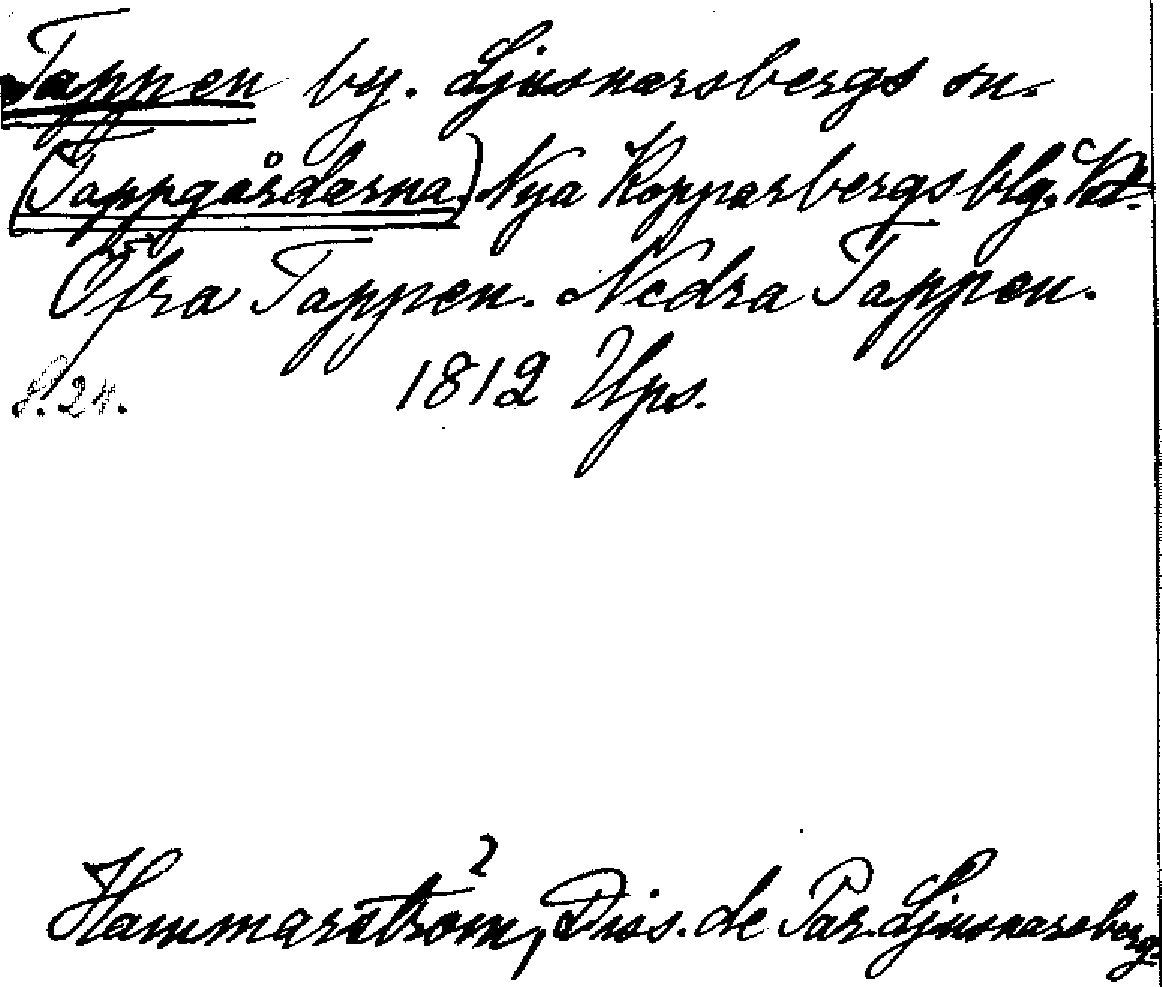 Tappen by. Ljusnarsbergs sn.
(Tappgårdarna) Nya Kopparbergs blg. Vst.
Öfra Tappen. Nedra Tappen.
S. 24. 1812 Ups.
2
Hammarström, Diss. de Par. Ljusnarsberg.